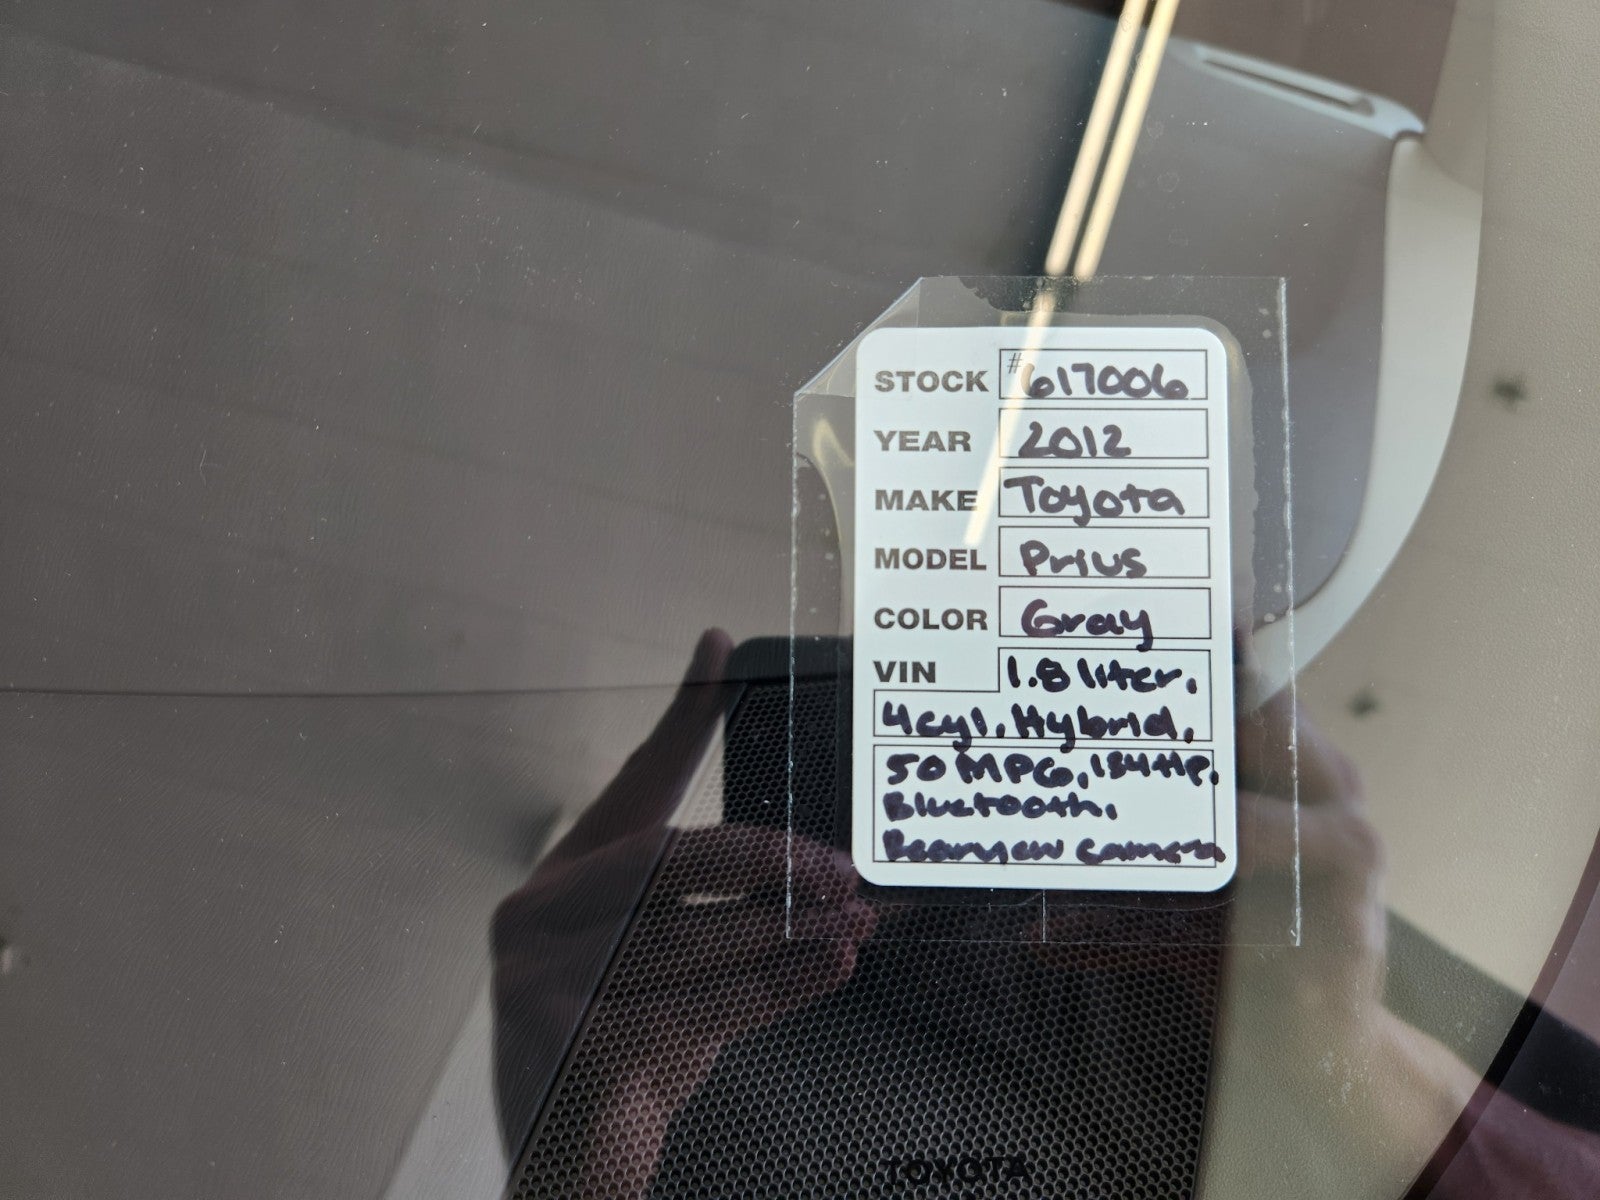 STOCK #617006
YEAR 2012
MAKE Toyota
MODEL Prius
COLOR Gray
VIN 1.8 liter,
4cyl, Hybrid,
50 MPG, 134 HP,
Bluetooth,
Rearview camera
TOYOTA